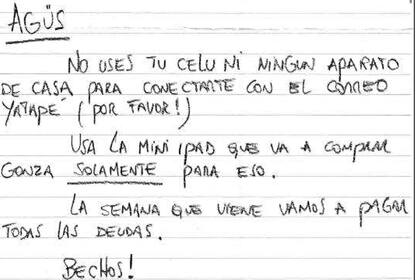 AGÜS
NO USES TU CELU NI NINGUN APARATO
DE CASA PARA CONECTARTE CON EL CORREO
YATAPÉ (POR FAVOR!)
USA LA MINI IPAD QUE VA A COMPRAR
GONZA SOLAMENTE PARA ESO.
LA SEMANA QUE VIENE VAMOS A PAGAR
TODAS LAS DEUDAS.
BECHOS!